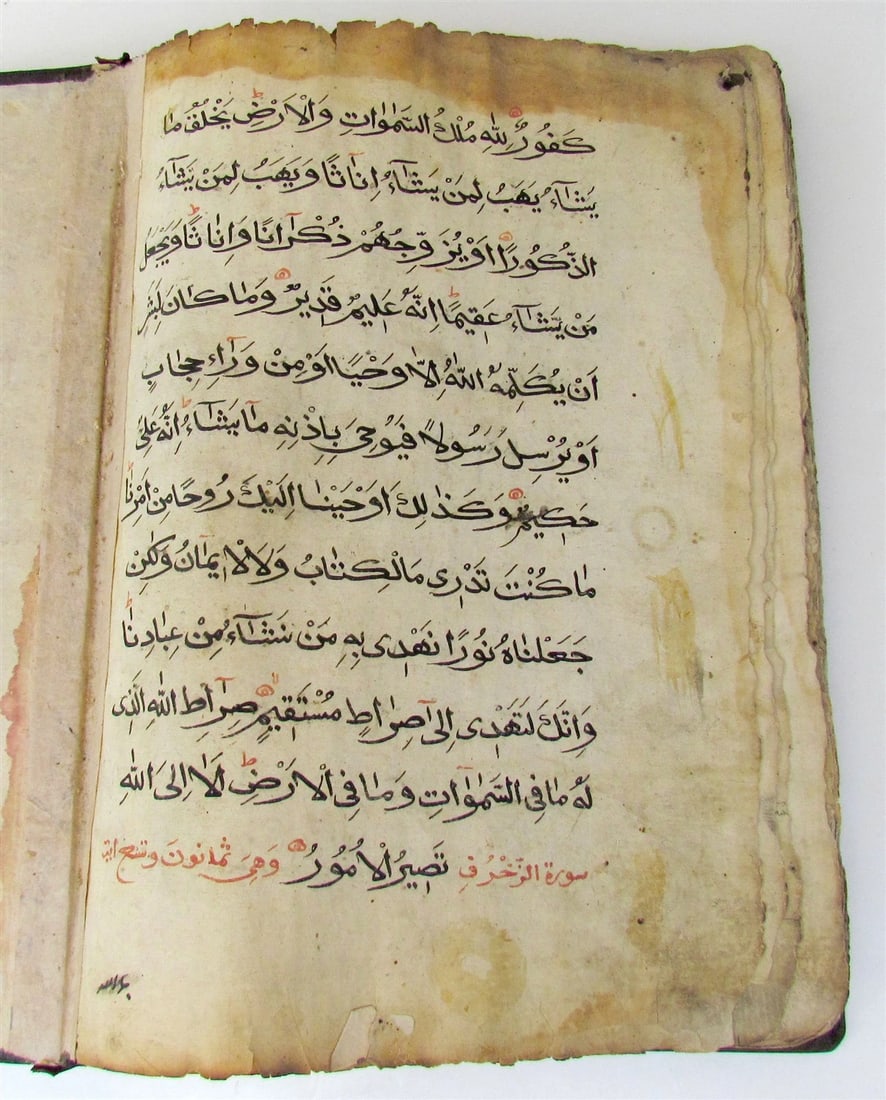 كَفُورٌ لِلّٰهِ مُلْكُ السَّمٰوٰاتِ وَالْاَرْضِ ط يَخْلُقُ مٰا
يَشٰٓاءُ يَهَبُ لِمَنْ يَشٰٓاءُ اِنٰاثًا وَيَهَبُ لِمَنْ يَشٰٓاءُ
الذُّكُورَ اَوْ يُزَوِّجُهُمْ ذُكْرٰانًا وَاِنٰاثًا ط وَيَجْعَلُ
مَنْ يَشٰٓاءُ عَقِيمًا ط اِنَّهُ عَلِيمٌ قَدِيرٌ وَمٰا كٰانَ لِبَشَرٍ
اَنْ يُكَلِّمَهُ اللّٰهُ اِلّٰا وَحْيًا اَوْ مِنْ وَرٰٓاءِ حِجٰابٍ
اَوْ يُرْسِلَ رَسُولًا فَيُوحِىَ بِاِذْنِهِ مٰا يَشٰٓاءُ ط اِنَّهُ عَلِىٌّ
حَكِيمٌ وَكَذٰلِكَ اَوْحَيْنٰا اِلَيْكَ رُوحًا مِنْ اَمْرِنٰا ط
مٰا كُنْتَ تَدْرِى مَا الْكِتٰابُ وَلَا الْاِيمٰانُ وَلٰكِنْ
جَعَلْنٰاهُ نُورًا نَهْدِى بِهِ مَنْ نَشٰٓاءُ مِنْ عِبٰادِنٰا ط
وَاِنَّكَ لَتَهْدِى اِلىٰ صِرٰاطٍ مُسْتَقِيمٍ صِرٰاطِ اللّٰهِ الَّذِى
لَهُ مٰا فِى السَّمٰوٰاتِ وَمٰا فِى الْاَرْضِ ط اَلَا اِلَى اللّٰهِ
تَصِيرُ الْاُمُورُ
سورة الزّخْرُفِ وَهِىَ ثمٰانونَ وتسع آية